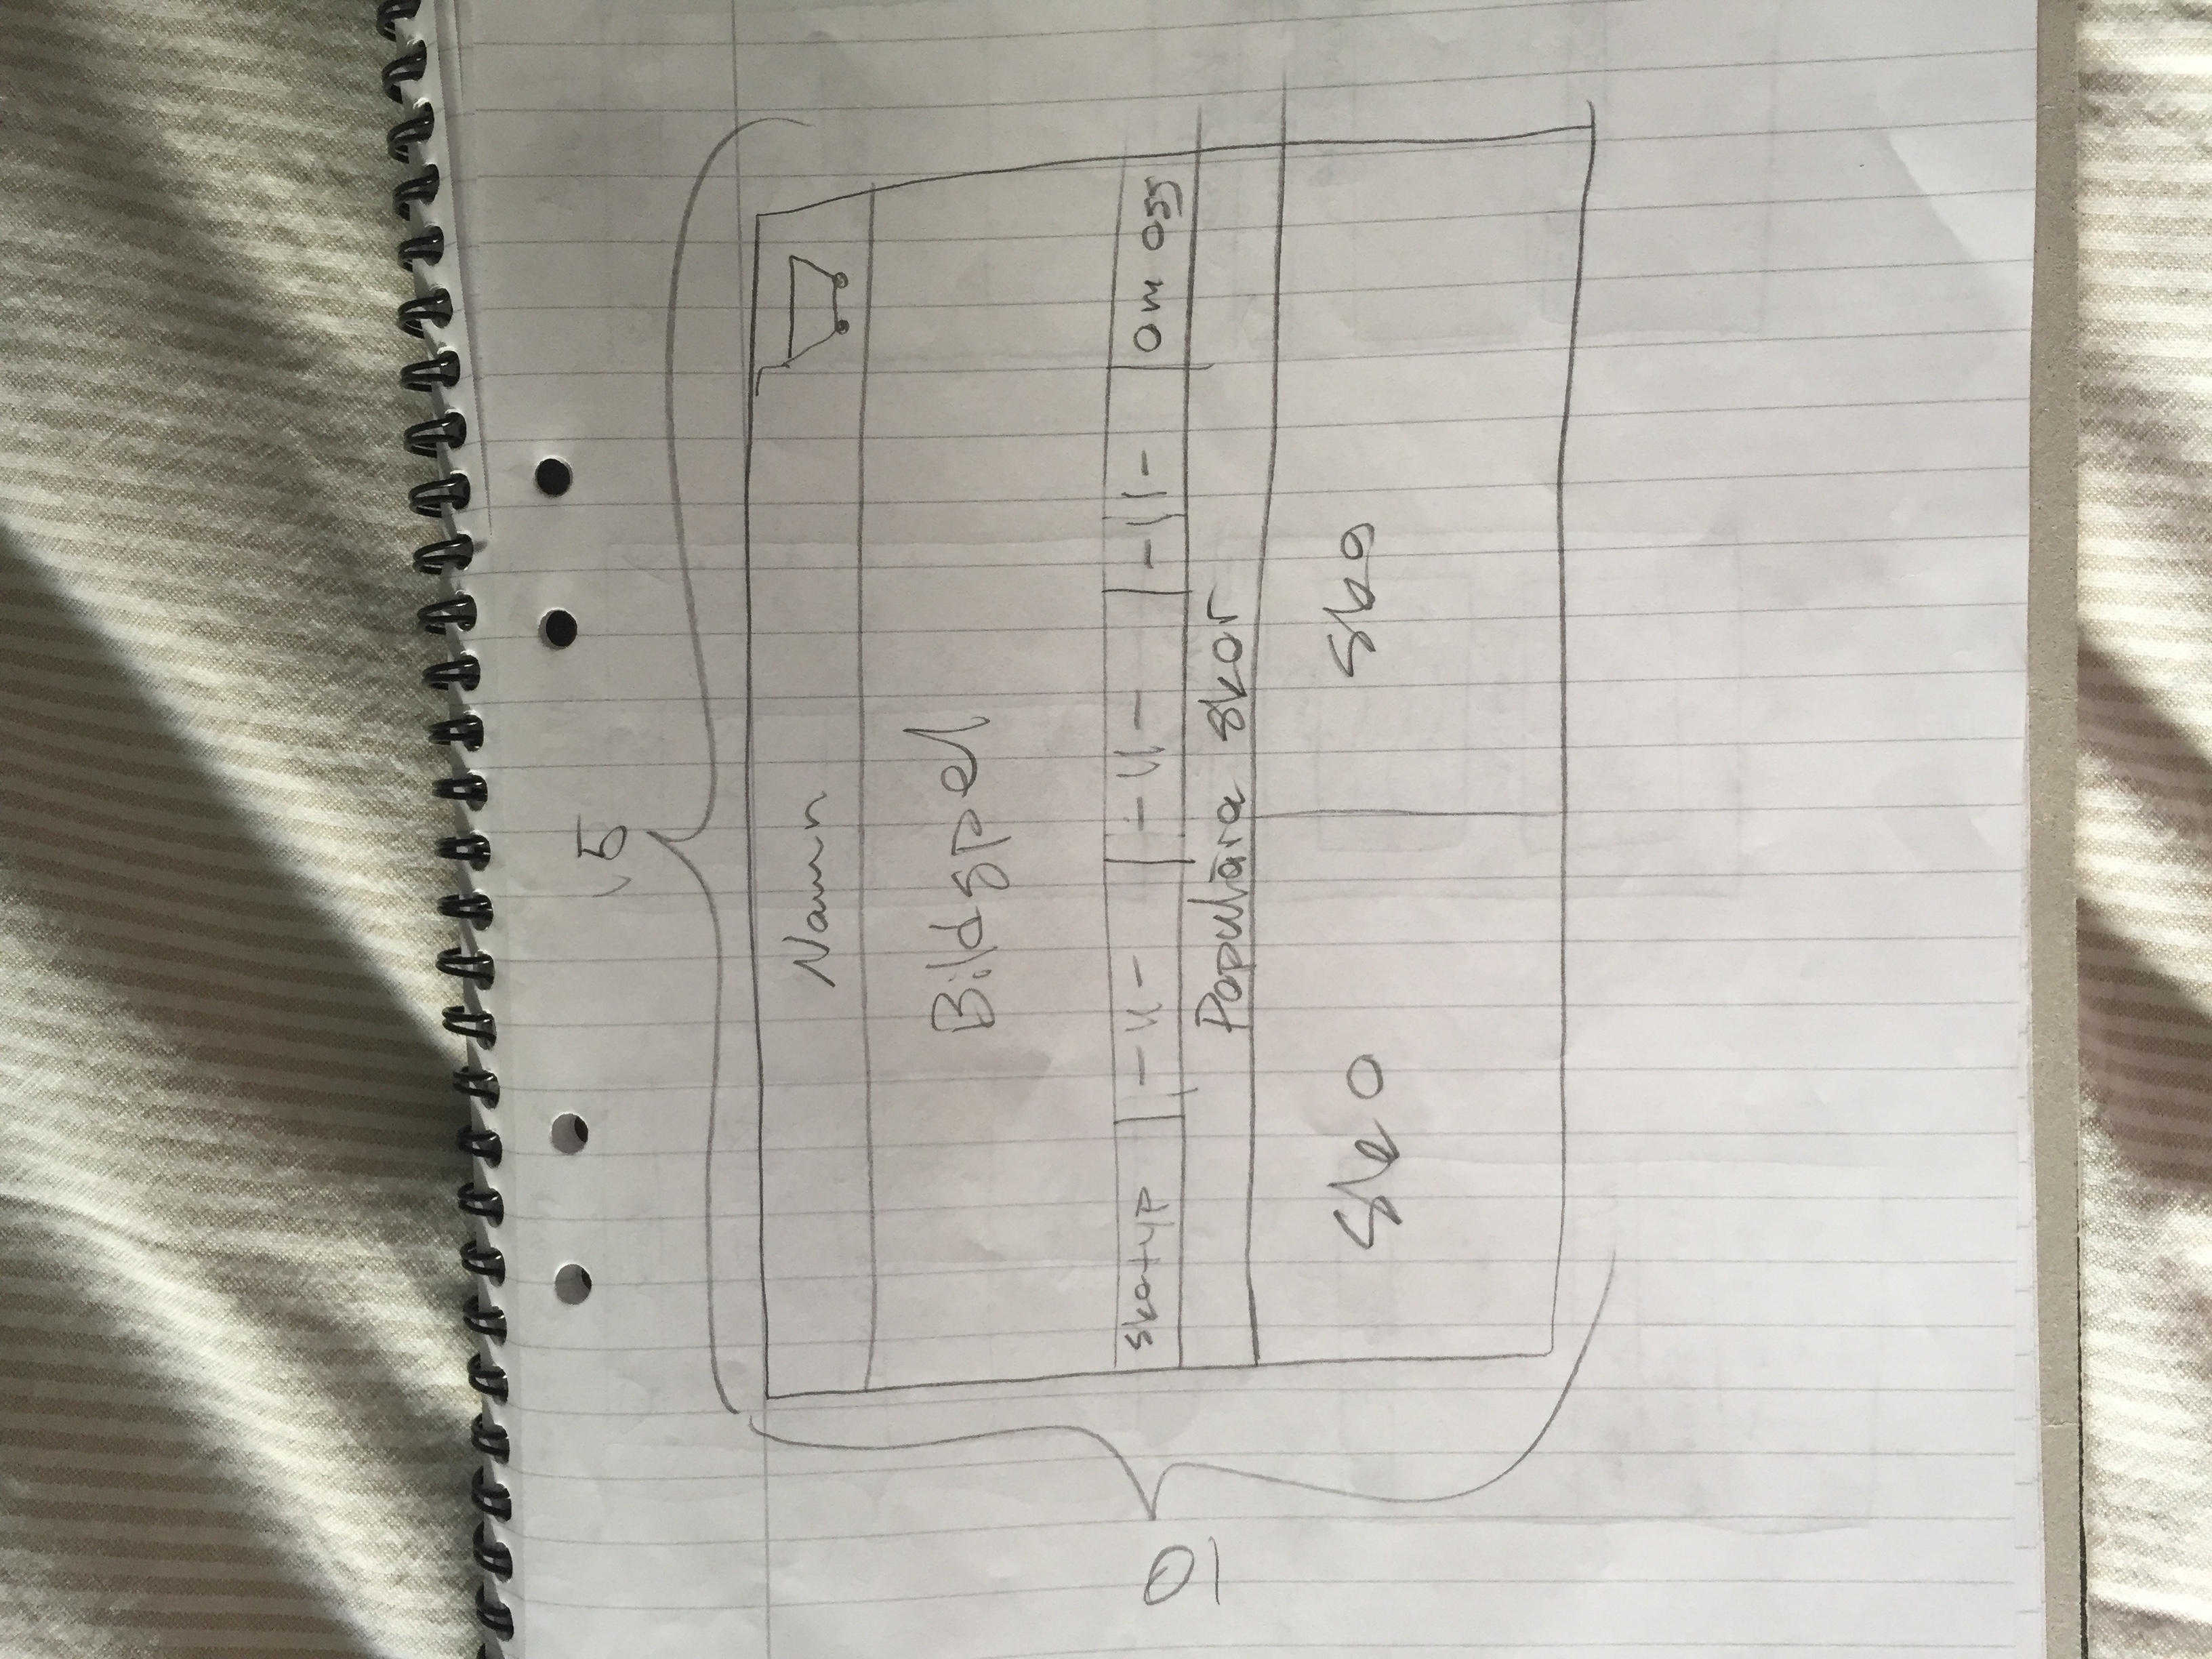 15
Namn
Bildspel
10
skotyp -11- -11- -11- Om oss
Populära skor
Sko Sko